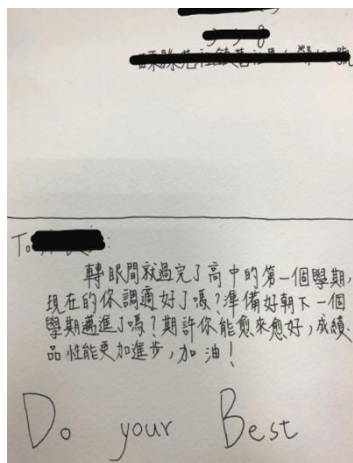 To
轉眼間就過完了高中的第一個學期,
現在的你調適好了嗎?準備好朝下一個
學期邁進了嗎?期許你能愈來愈好,成績、
品性能更加進步,加油!
Do your Best